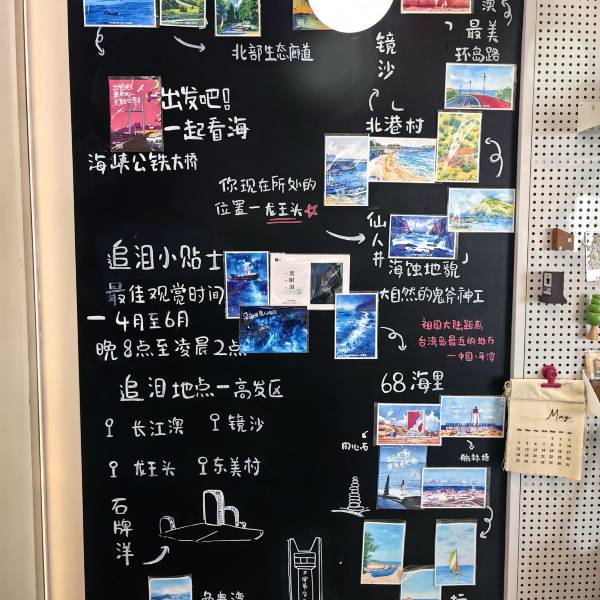 北部生态廊道
镜沙
澳
最美
环岛路
出发吧!
一起看海
海峡公铁大桥
北港村
你现在所处的
位置一龙王头
仙人井
海蚀地貌
大自然的鬼斧神工
追泪小贴士
最佳观赏时间
一4月至6月
晚8点至凌晨2点
祖国大陆距离
台湾岛最近的地方
—中国·平潭
追泪地点一高发区
68海里
长江澳 镜沙
龙王头 东美村
同心石
石牌洋
May